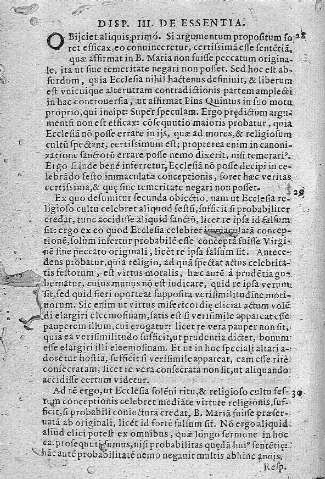 DISP. III. DE ESSENTIA.
OBijciet aliquis primò. Si argumentum propositum fo- 28
ret efficax, eo convinceretur, certissimā esse sententiā,
quæ affirmat in B. Maria non fuisse peccatum origina-
le, ita ut sine temeritate negari non posset. Sed hoc est ab-
surdum, quia Ecclesia nihil hactenus definiuit, & liberum
est vnicuique alterutram contradictionis partem amplecti
in hac controuersia, ut affirmat Pius Quintus in suo motu
proprio, qui incipit Super speculam. Ergo prædictum argu-
mentū non est efficax: cōsequutio maioris probatur, quia
Ecclesiā nō posse errare in ijs, quæ ad mores, & religiosum
cultū spectant, certissimum est; propterea enim in canoni-
zatione sanctorū errare posse nemo dixerit, nisi temerari°.
Ergo si inde benè inferretur, Ecclesiā nō posse decipi in ce-
lebrādo festo immaculatæ conceptionis, foret hæc veritas
certissima, & quę sine temeritate negari non posset.
Ex quo desumitur secunda obiectio, nam ut Ecclesia re- 29
ligioso cultu celebret aliquod festū, sufficit si probabiliter
credat, tunc accidisse aliquid sanctū, licet re ipsa id falsum
sit: ergo ex eo quod Ecclesia celebret immaculatā concep-
tionē, solum infertur probabilē esse conceptā fuisse Virgi-
nē sine peccato originali, licet re ipsa falsum sit. Antece-
dens probatur, quia religio, ad quā spectat actus celebrita-
tis festorum, est virtus moralis, hæc autē à prudētia gu-
bernatur, cuius munus nō est iudicare, quid re ipsa verum
sit, sed quid fieri oporteat supposita verisimilitudine moti-
uorum. Sic enim ut virtus misericordiæ eliciat actum volē-
di elargiri eleemosinam, satis est si verisimile appareat esse
pauperem illum, cui erogatur: licet re vera pauper non sit,
quia ea verisimilitudo sufficit, ut prudentia dictet, bonum
esse elargiri illi eleemosinam. Et ut in hoc speciali altari a-
doretur hostia, sufficit si verisimile appareat, eam esse ritè
consecratam, licet re vera consecrata non sit, ut aliquando
accidisse certum videtur.
Ad rē ergo, ut Ecclesia solēni ritu, & religioso cultu fes- 30
tum conceptionis celebret mediate virtute religionis, suf-
ficit, si probabili coniectura credat, B. Mariā fuisse præser-
uatā ab originali, licèt id forte falsum sit. Nō ergo aliquid
aliud elici potest ex omnibus, quæ longo sermone in hoc
hac autē probabilitatē nemo negauit multis abhinc annis.
Resp.